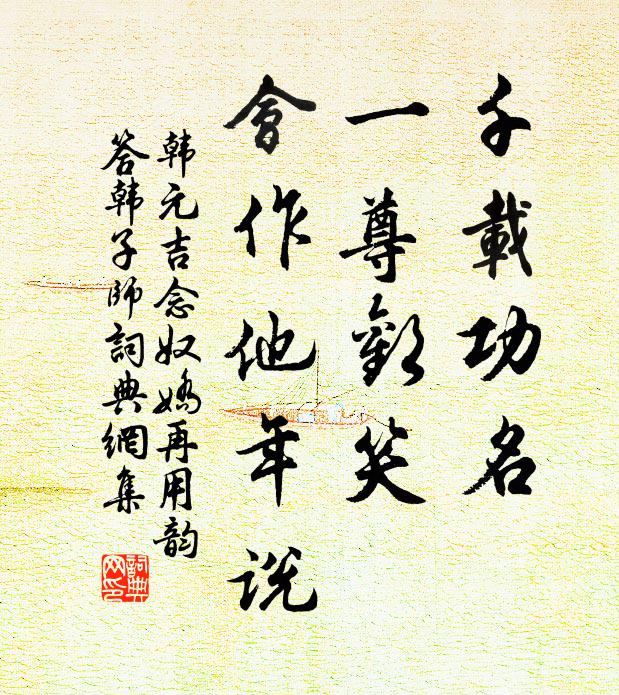 千載功名
一尊歡笑
會作他年說
韩元吉念奴嬌再用韵
答韩子師詞典網集
詞典网印